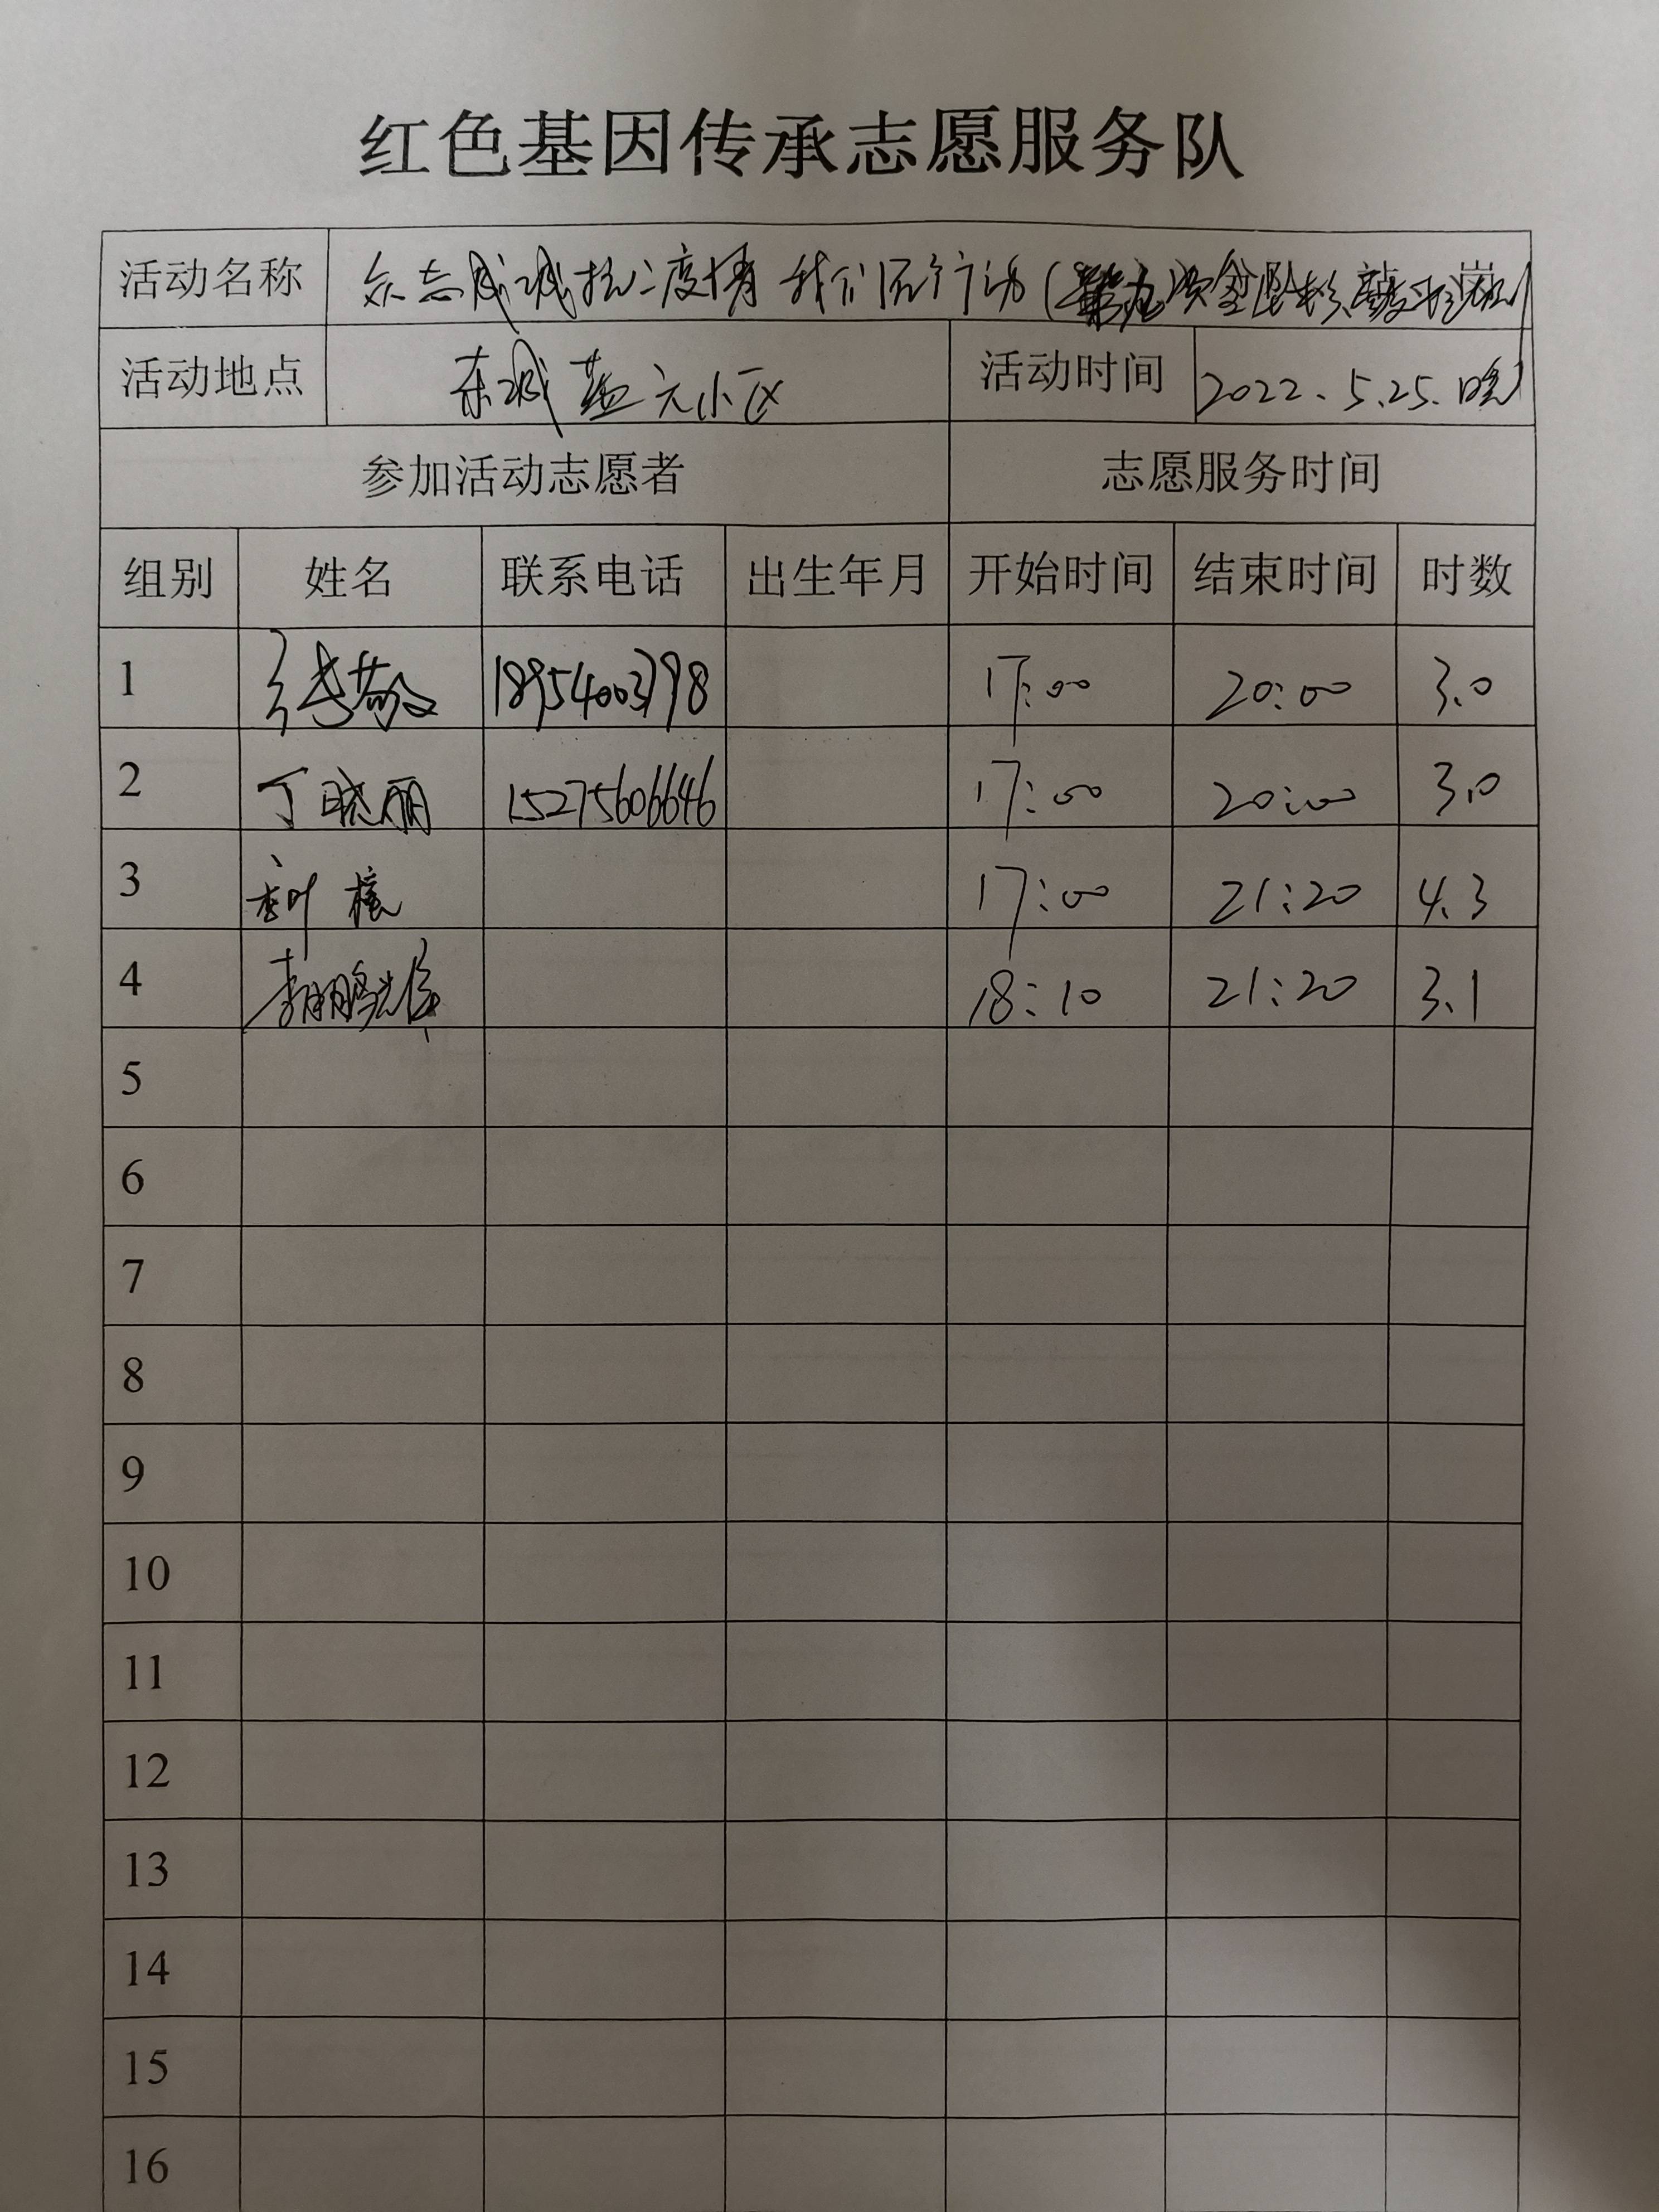 红色基因传承志愿服务队
活动名称 众志成城抗疫情 我们在行动(
活动地点 东城 小区 活动时间 2022.5.25.晚
参加活动志愿者 志愿服务时间
组别 姓名 联系电话 出生年月 开始时间 结束时间 时数
1 18954003798 17:00 20:00 3.0
2 丁晓丽 15275606646 17:00 20:00 3.0
3 17:00 21:20 4.3
4 18:10 21:20 3.1
5
6
7
8
9
10
11
12
13
14
15
16